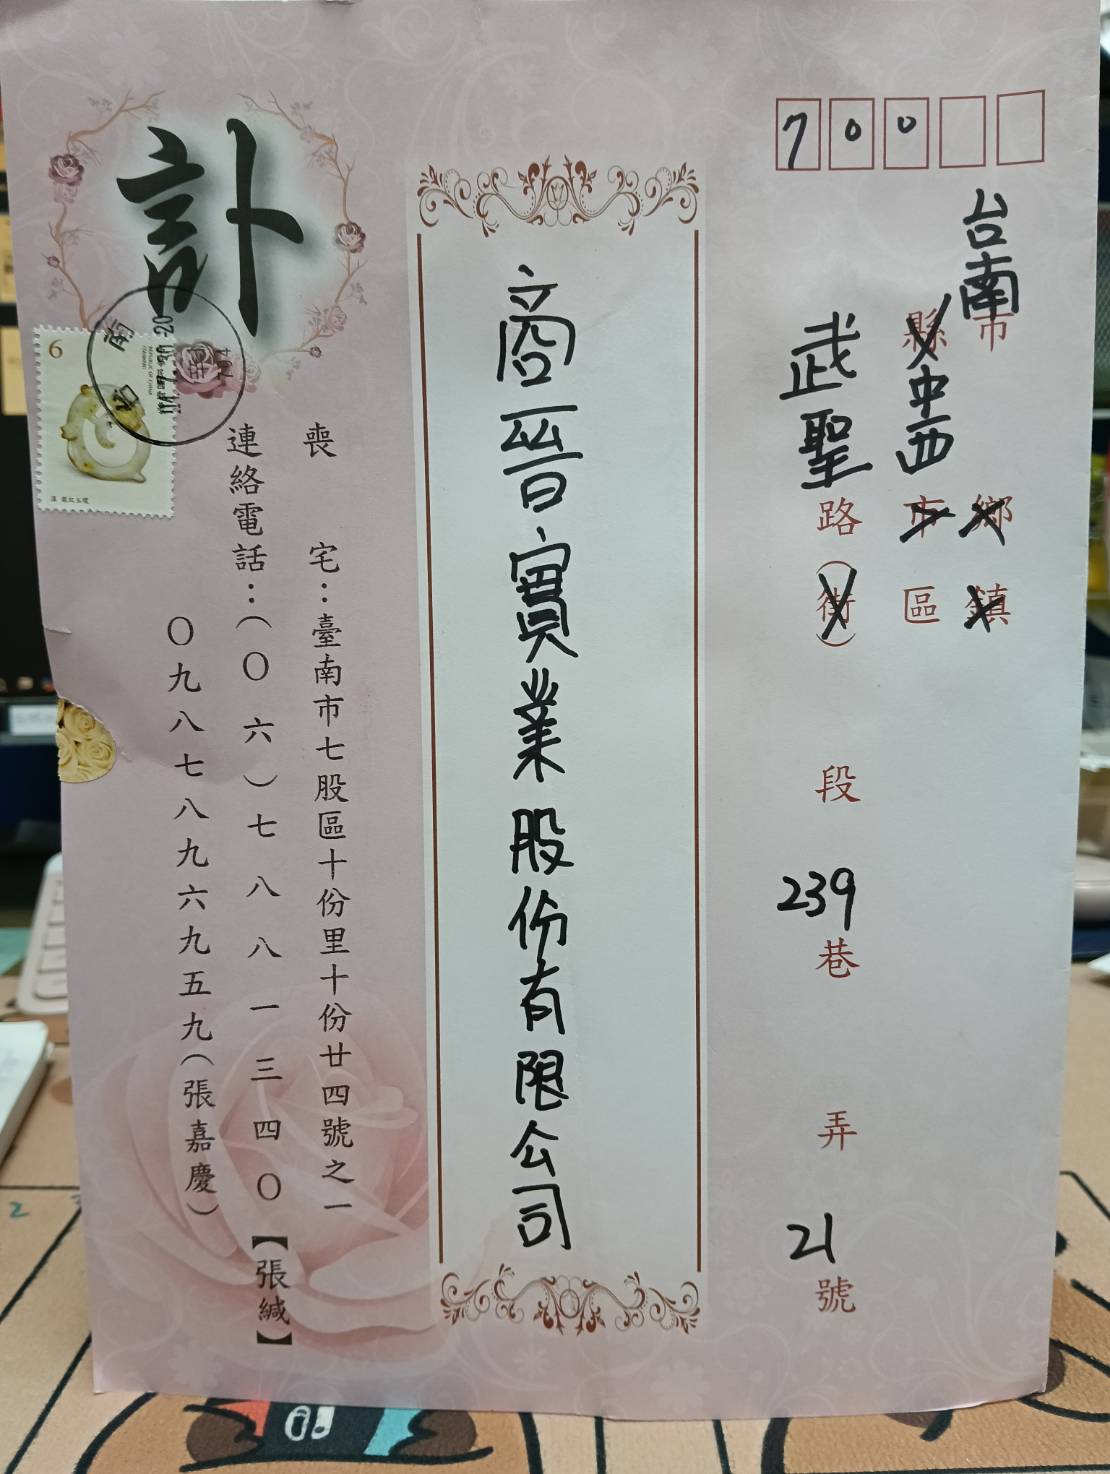 700
台南市縣中西鄉鎮市區
武聖路(街)段239巷弄21號
商晉實業股份有限公司
訃
喪宅：臺南市七股區十份里十份廿四號之一
連絡電話：(〇六)七八八一三四〇【張緘】
〇九八七八九六九五九(張嘉慶)
6
REPUBLIC OF CHINA